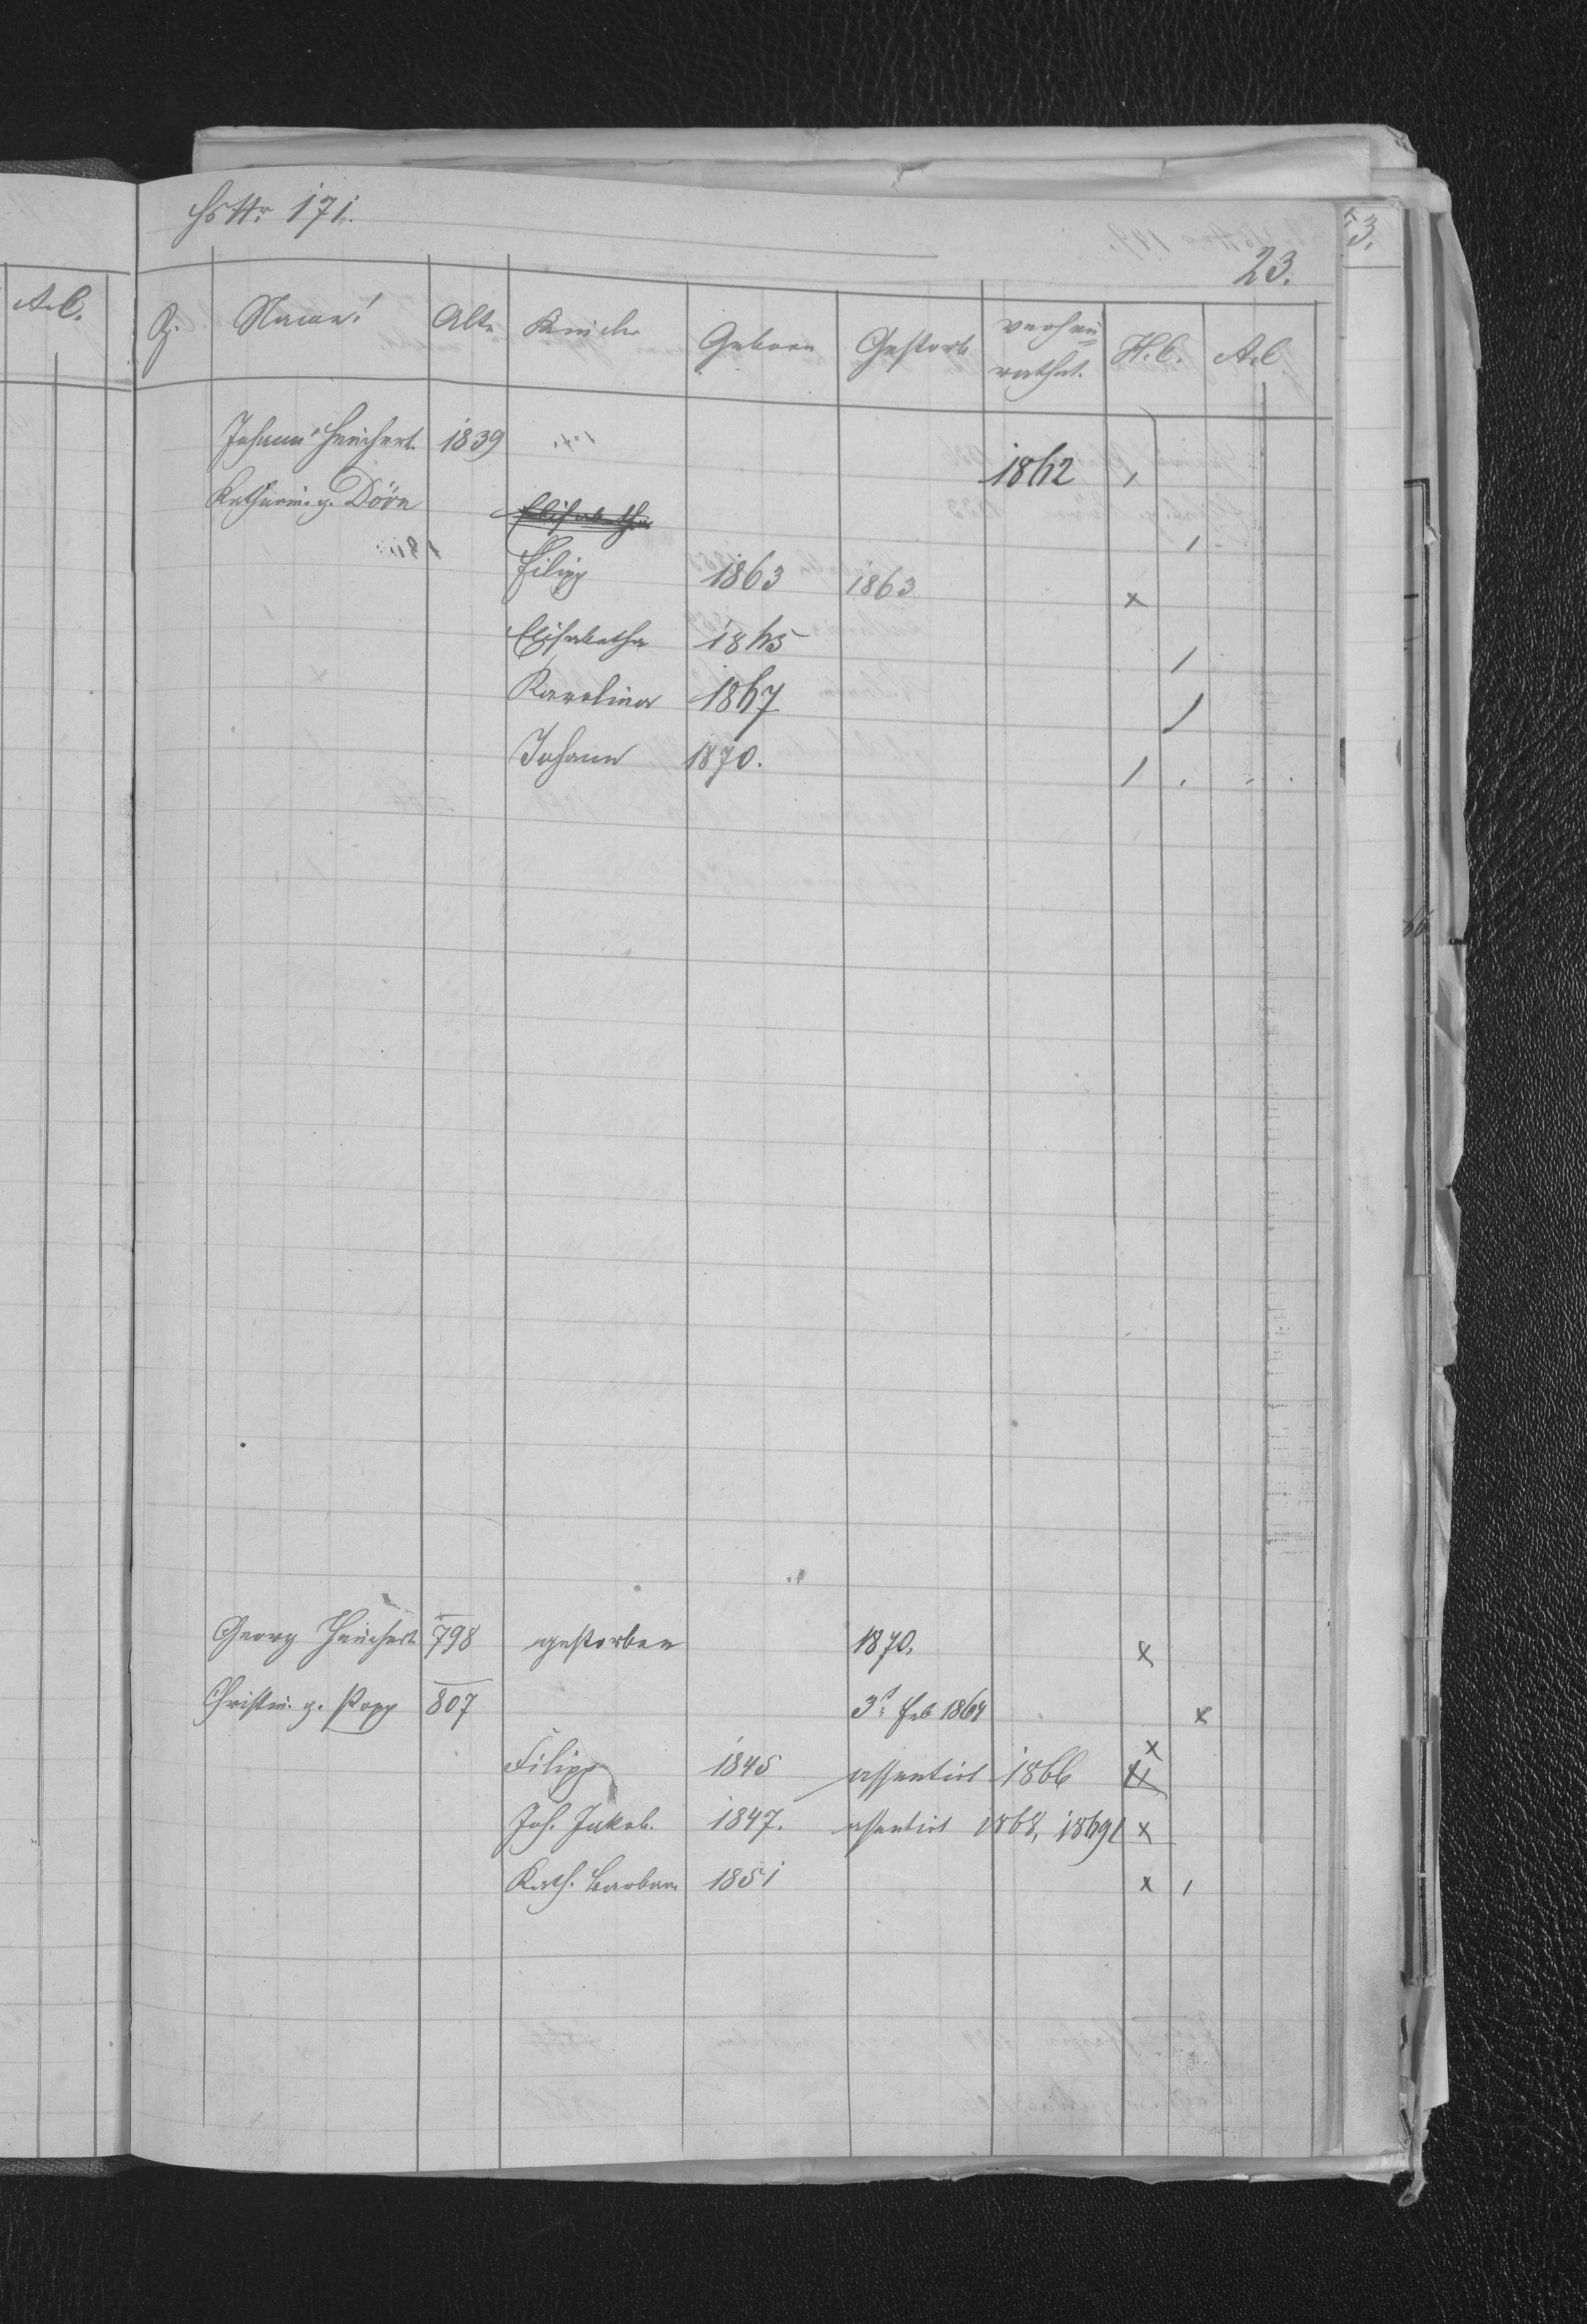 Hs Nr 171.
23.
Z. Name: Alte Kinder Geboren Gestorb verheu=rathet. H. C. A.C
Johann Heuchert 1839 1862
Katharin. g. Dörn
Elisabetha
Filipp 1863 1863 x
Elisabetha 1865
Karolina 1867
Johann 1870.
Georg Heuchert 798 gestorben 1870. x
Christin. g. Popp 807 3t Feb 1864 x
Filipp 1845 assentirt 1866 x
Joh. Jakob. 1847. assentirt 1868, 1869 x
Kath. Barbara 1851 x
A.C.